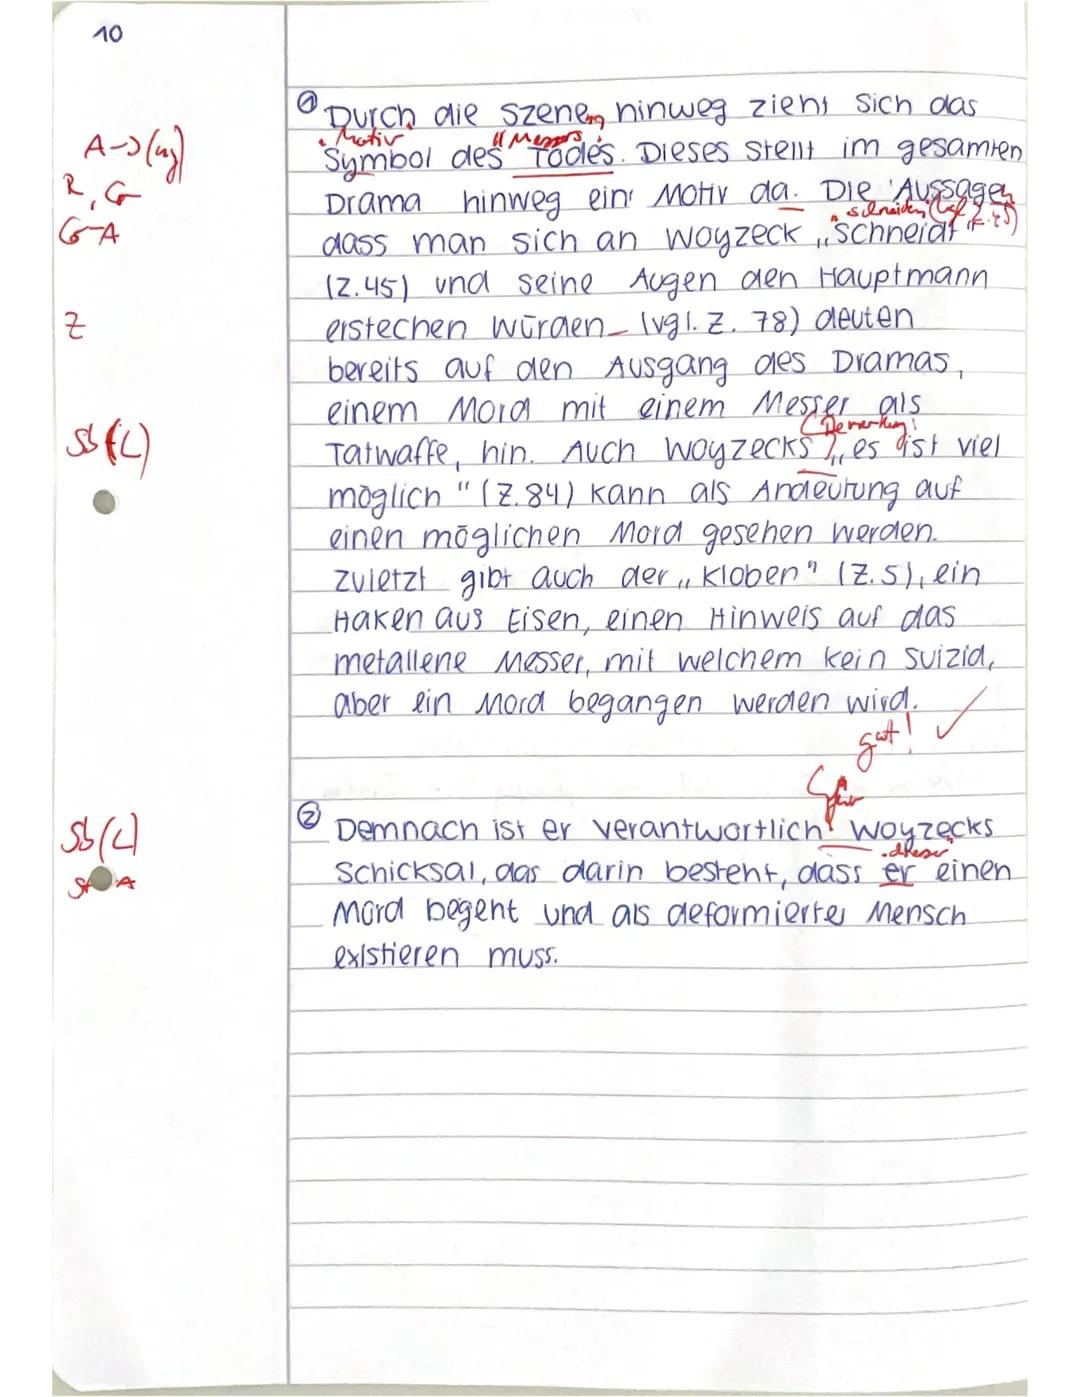 10
① Durch die Szenen hinweg zieht sich das
A->(ug)
"Motiv" "Messers"
Symbol des Todes. Dieses stellt im gesamten
R, G
Drama hinweg ein Motiv da. Die Aussagen
"schneiden" (vgl. Z. 45)
G A
dass man sich an Woyzeck „schneidt"
(Z.45) und seine Augen den Hauptmann
Z
erstechen würden (vgl. Z. 78) deuten
bereits auf den Ausgang des Dramas,
einem Mord mit einem Messer als
Bemerkung:
Sb (L)
Tatwaffe, hin. Auch Woyzecks „es ist viel
möglich" (Z.84) kann als Andeutung auf
einen möglichen Mord gesehen werden.
zuletzt gibt auch der „Kloben" (Z.5), ein
Haken aus Eisen, einen Hinweis auf das
metallene Messer, mit welchem kein Suizid,
aber ein Mord begangen werden wird.
gut! ✓
für
Sb (L)
② Demnach ist er verantwortlich Woyzecks
"dieser"
Schicksal, das darin besteht, dass er einen
A
Mord begeht und als deformierter Mensch
existieren muss.